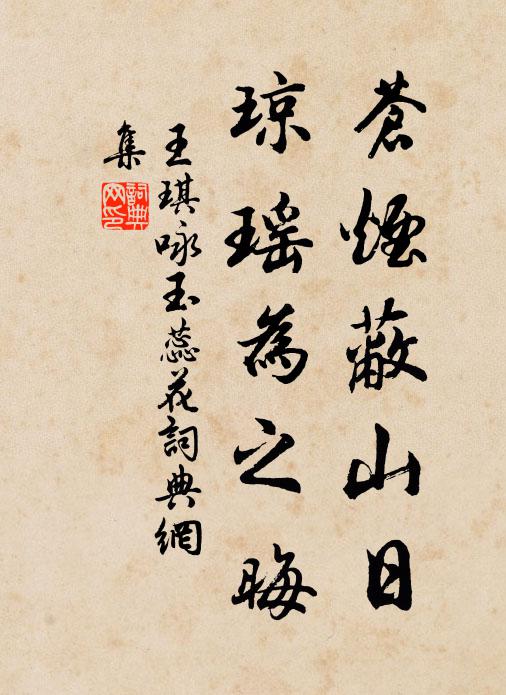 蒼煙蔽山日
琼瑶為之晦
王琪咏玉蕊花詞典網
集
詞典
网印